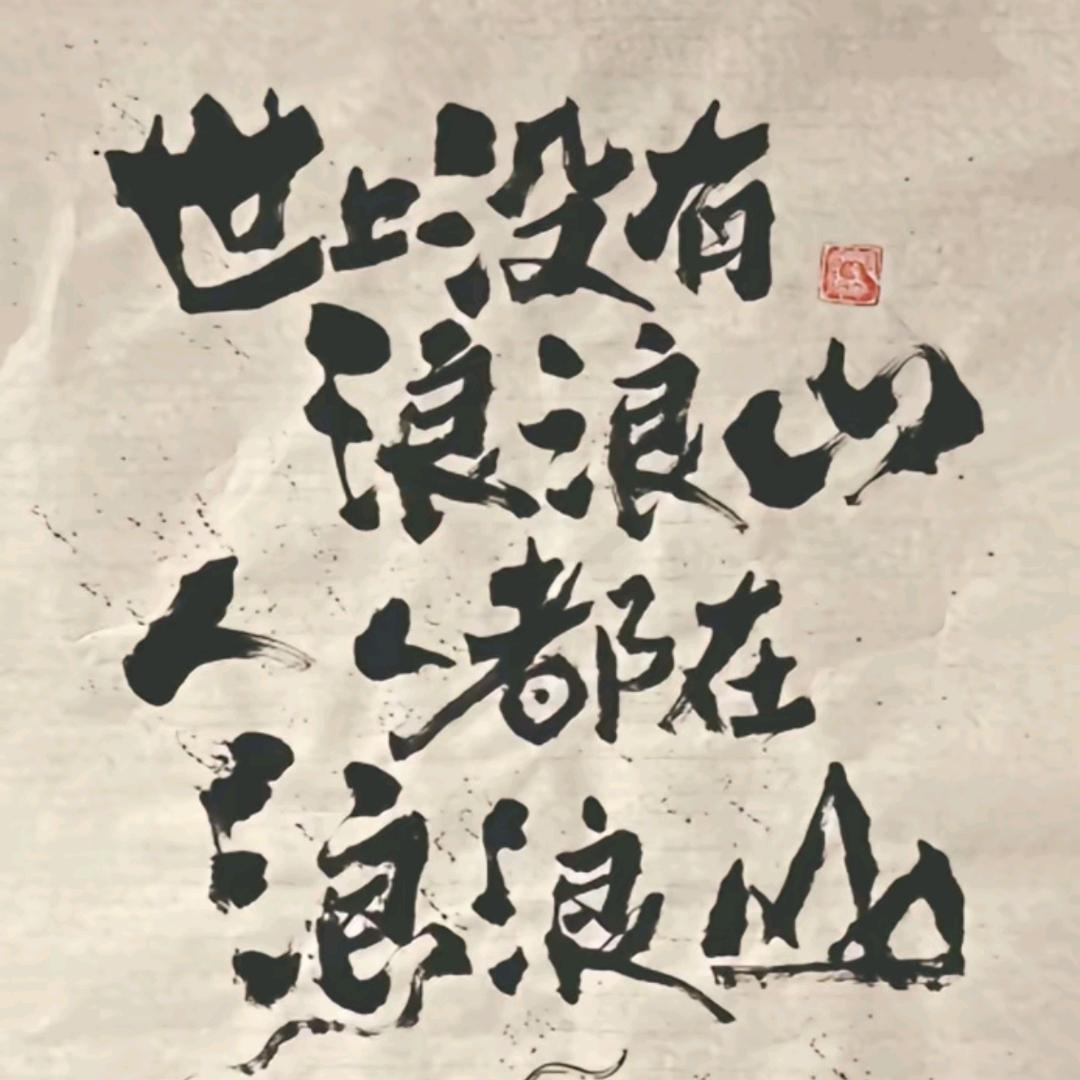 世上没有
浪浪山
人人都在
浪浪山